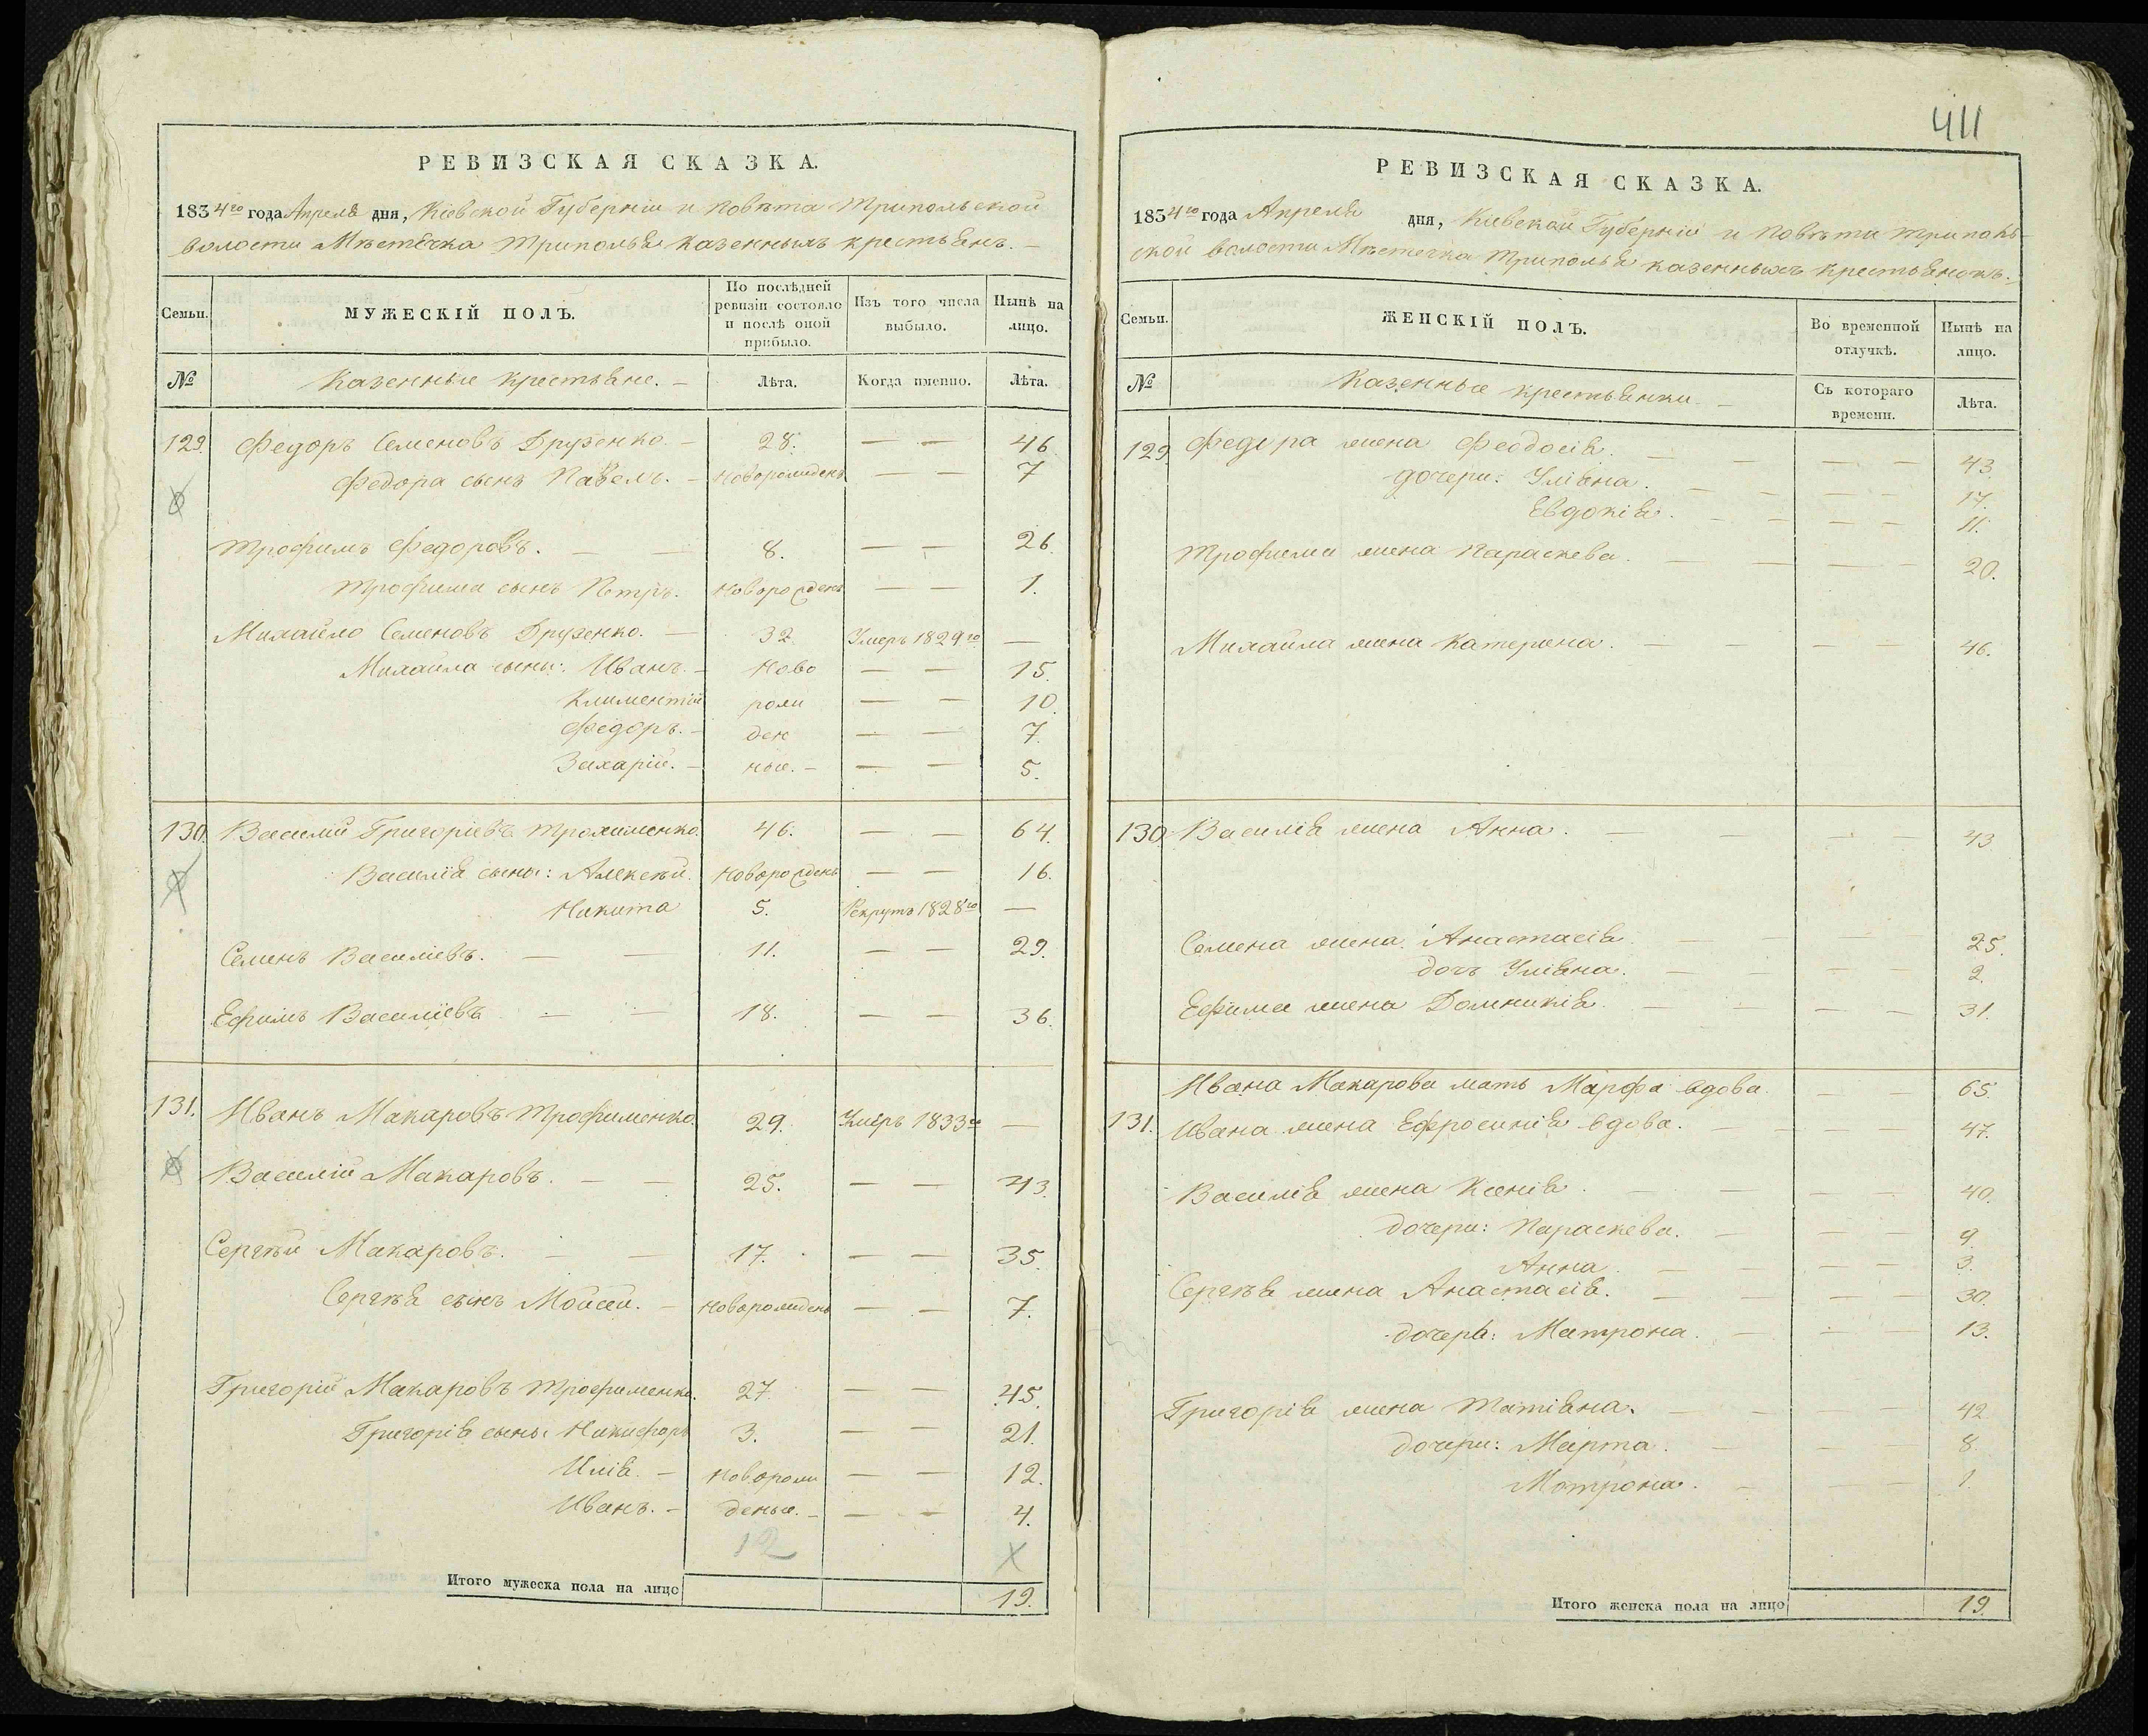 РЕВИЗСКАЯ СКАЗКА.
1834го года Апреля дня, Кіевской Губерніи и Повѣта Трипольской
волости Мѣстечка Триполья казенныхъ крестьянъ. —
Семьи.
МУЖЕСКІЙ ПОЛЪ.
По послѣдней ревизіи состояло и послѣ оной прибыло.
Изъ того числа выбыло.
Нынѣ на лицо.
№ Казенные крестьяне. — Лѣта. Когда имянно. Лѣта.
129. Федоръ Семеновъ Друзенко. — 28. — — 46
Федора сынъ Павелъ. — новорожденъ — — 7
Трофимъ Федоровъ. — — 8. — — 26.
Трофима сынъ Петръ. новорожденъ — — 1.
Михайло Семеновъ Друзенко. — 32 Умеръ 1829го —
Михайла сыны: Иванъ. — Ново — — 15.
Климентій рож — — 10.
Федоръ. — ден — — 7.
Захарій. — ные. — — — 5.
130. Василій Григоріевъ Трохименко. 46. — — 64.
Василія сыны: Алексѣй. новорожденъ — — 16.
Никита 5. Рекрутъ 1828го —
Семенъ Василіевъ. — — 11. — — 29.
Ефимъ Василіевъ — — 18. — — 36.
131. Иванъ Макаровъ Трофименко. 29. Умеръ 1833го —
Василій Макаровъ. — — 25. — — 43.
Сергѣй Макаровъ. — — 17. — — 35.
Сергѣя сынъ Мойсей. — новорожденъ — — 7.
Григорій Макаровъ Трофименко. 27. — — 45.
Григорія сыны Никифоръ 3. — — 21.
Илія. — новорож — — 12.
Иванъ. — деные. — — — 4.
12 X
Итого мужеска пола на лицо 19.
411
РЕВИЗСКАЯ СКАЗКА.
1834го года Апреля дня, Кіевской Губерніи и Повѣта Триполь-
ской волости Мѣстечка Триполья казенныхъ крестьянокъ.
Семьи.
ЖЕНСКІЙ ПОЛЪ.
Во временной отлучкѣ.
Нынѣ на лицо.
№ Казенные крестьянки — Съ котораго времени. Лѣта.
129. Федора жена Феодосія. — — — — 43.
дочери: Уліяна. — — — — 17.
Евдокія. — — — — 11.
Трофима жена Параскева. — — — — 20.
Михайла жена Катерина. — — — — 46.
130. Василія жена Анна. — — — — 43
Семена жена Анастасія. — — — — 25.
дочь Уліяна. — — — — 2.
Ефима жена Домникія. — — — — 31.
Ивана Макарова мать Марфа вдова. — — 65.
131. Ивана жена Ефросинія вдова. — — — — 47.
Василія жена Ксенія. — — — — 40.
дочери: Параскева. — — — 9.
Анна. — — — — 3.
Сергѣя жена Анастасія. — — — — 30.
дочерь: Матрона. — — — 13.
Григорія жена Татіяна. — — — — 42
дочери: Марта. — — 8.
Мотрона. — — — 1.
Итого женска пола на лицо 19.